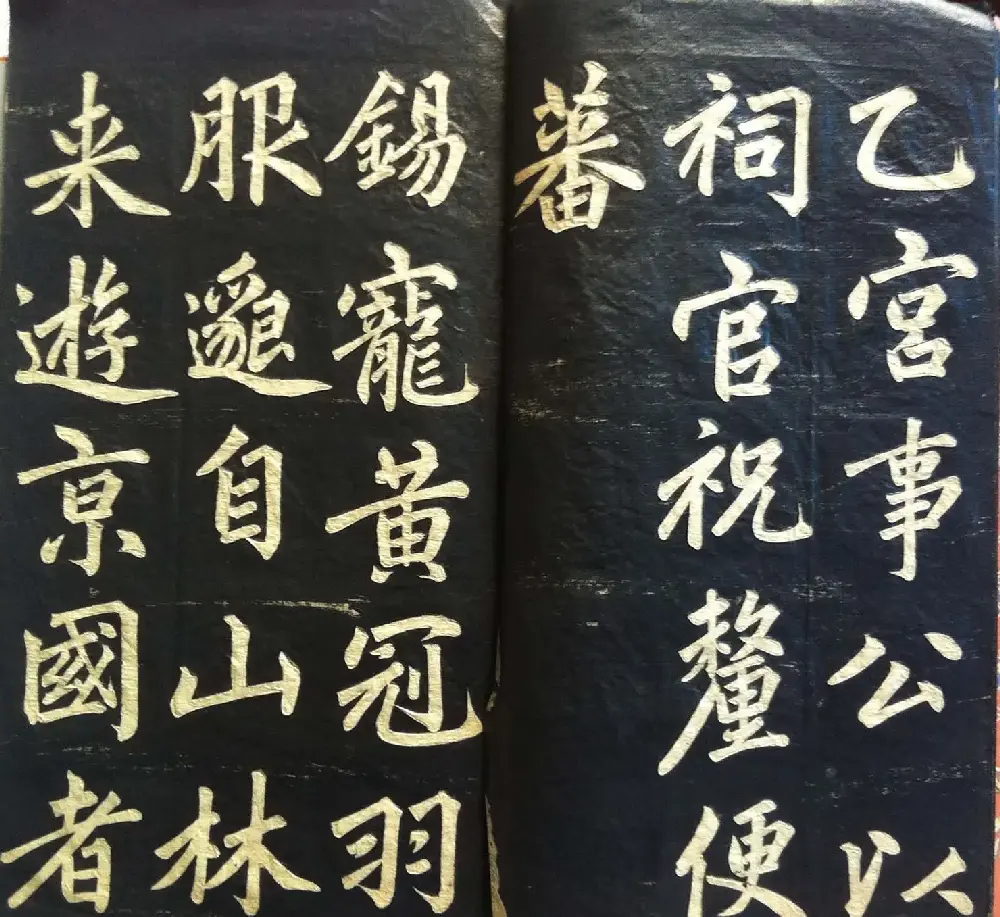 乙宮事公以
祠官祝釐便
蕃
錫寵黃冠羽
服邈自山林
来遊京國者